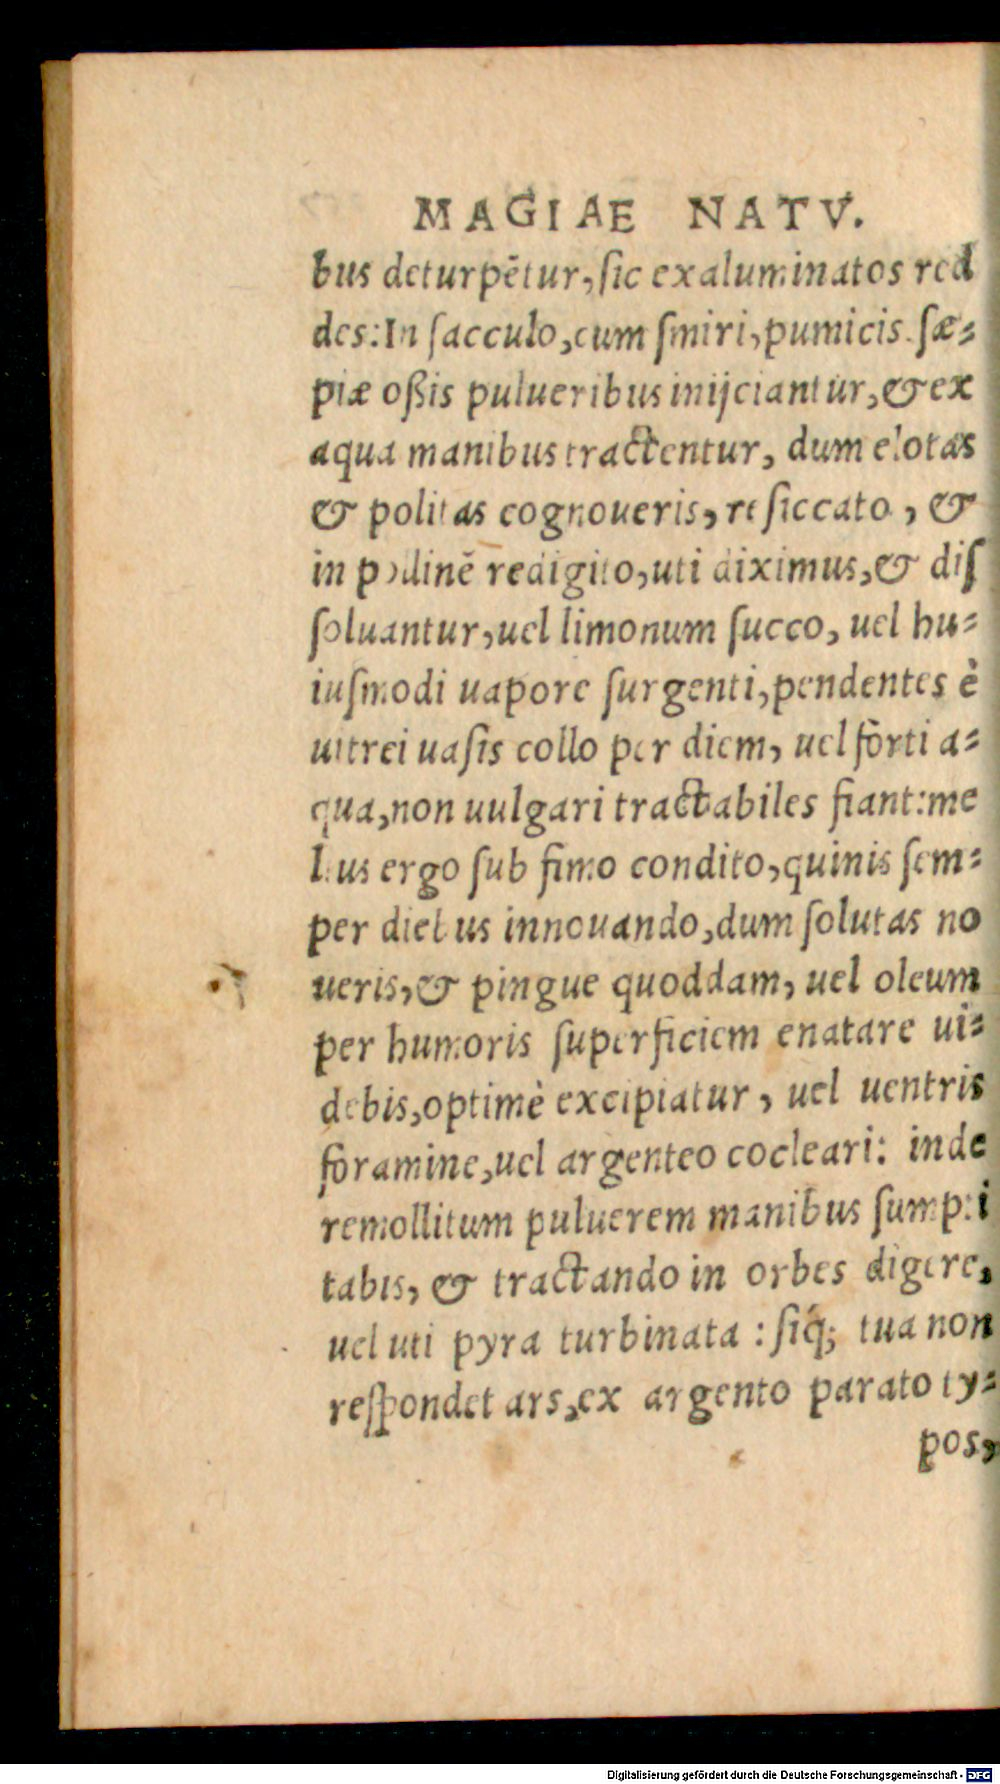 MAGIAE NATV.
bus deturpētur, ſic exaluminatos red
des: In ſacculo, cum ſmiri, pumicis. ſæ⸗
piæ oßis pulueribus inijciantur, & ex
aqua manibus tractentur, dum elotas
& politas cognoueris, reſiccato, &
in poilinē redigito, uti diximus, & diſ
ſoluantur, uel limonum ſucco, uel hu⸗
iuſmodi uapore ſurgenti, pendentes è
uitrei uaſis collo per diem, uel forti a⸗
qua, non uulgari tractabiles fiant: me
lius ergo ſub fimo condito, quinis ſem⸗
per diebus innouando, dum ſolutas no
ueris, & pingue quoddam, uel oleum
per humoris ſuperficiem enatare ui⸗
debis, optimè excipiatur, uel uentris
foramine, uel argenteo cocleari: inde
remollitum puluerem manibus ſumpti
tabis, & tractando in orbes digere,
uel uti pyra turbinata: ſiq́; tua non
reſpondet ars, ex argento parato ty⸗
pos,
Digitalisierung gefördert durch die Deutsche Forschungsgemeinschaft - DFG